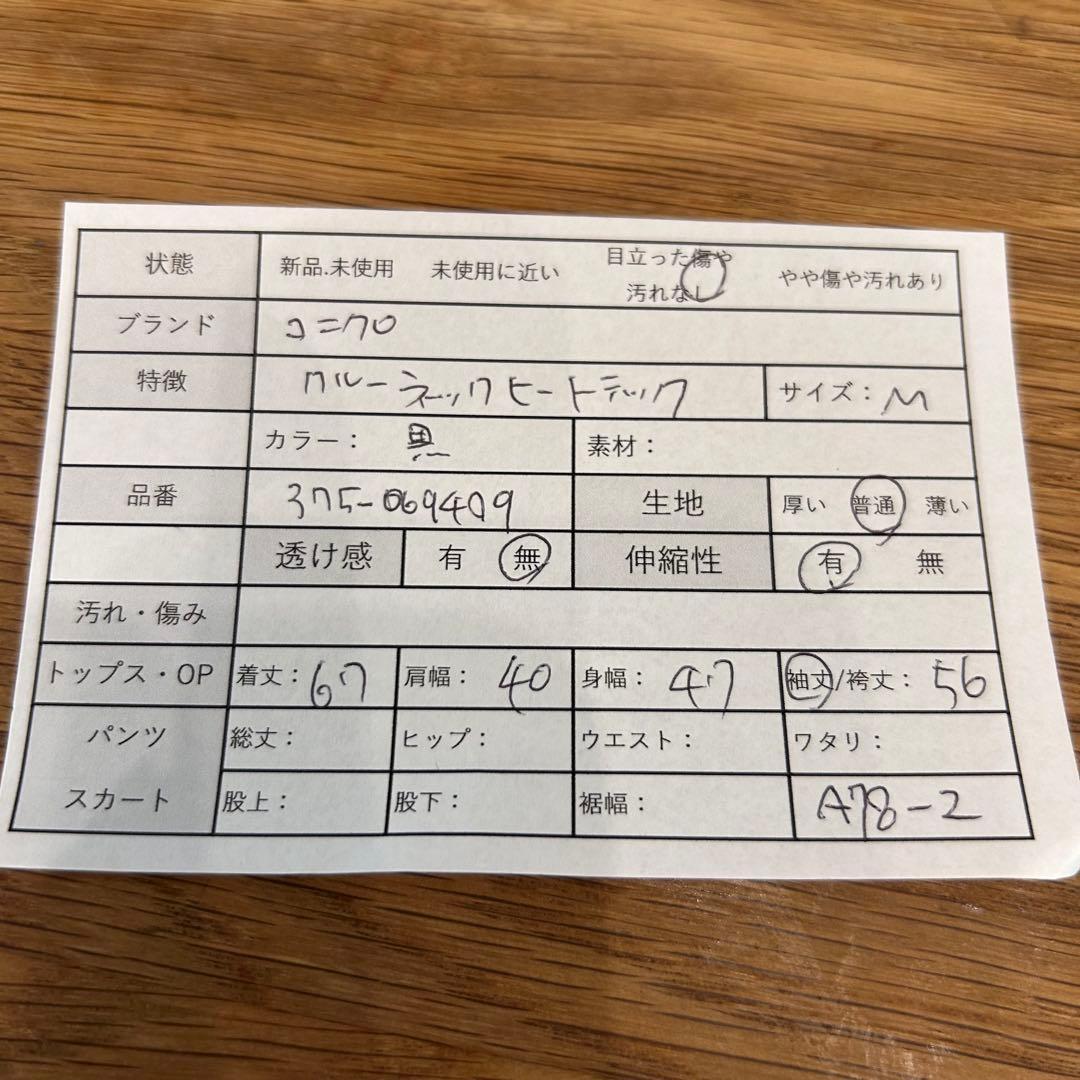 状態 新品.未使用 未使用に近い 目立った傷や汚れなし やや傷や汚れあり
ブランド ユニクロ
特徴 クルーネックヒートテック サイズ: M
カラー: 黒 素材:
品番 375-069409 生地 厚い 普通 薄い
透け感 有 無 伸縮性 有 無
汚れ・傷み
トップス・OP 着丈: 67 肩幅: 40 身幅: 47 袖丈/袴丈: 56
パンツ 総丈: ヒップ: ウエスト: ワタリ:
スカート 股上: 股下: 裾幅: A78-2